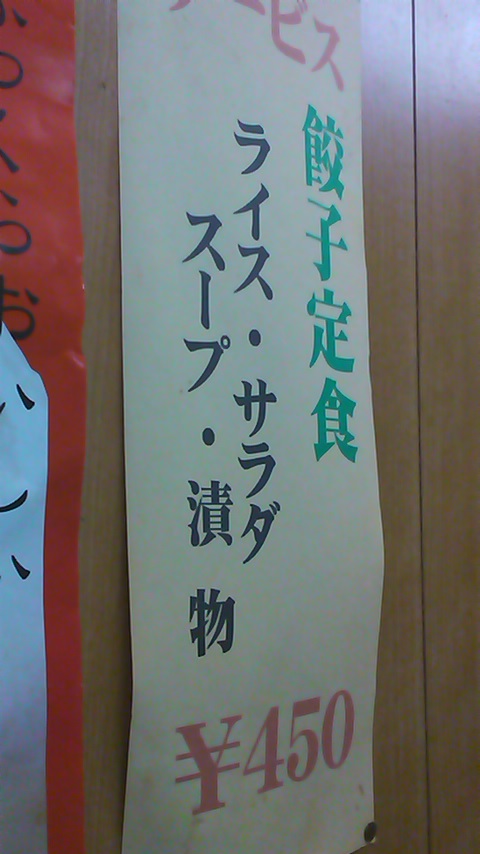 サービス
餃子定食
ライス・サラダ
スープ・漬物
¥450